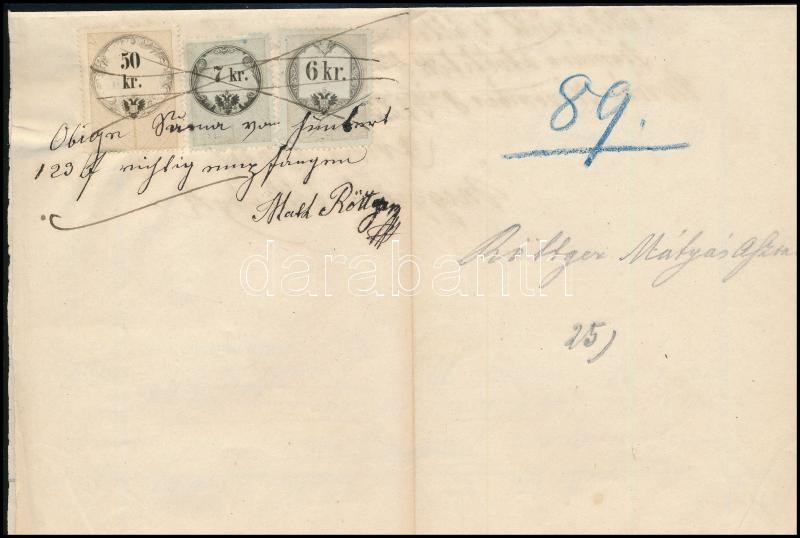 50
kr.
7 kr.
6 kr.
Obige Suma von hundert
123 f richtig empfangen
Math Röttger
89.
Röttger Mátyás
25)
darabanth